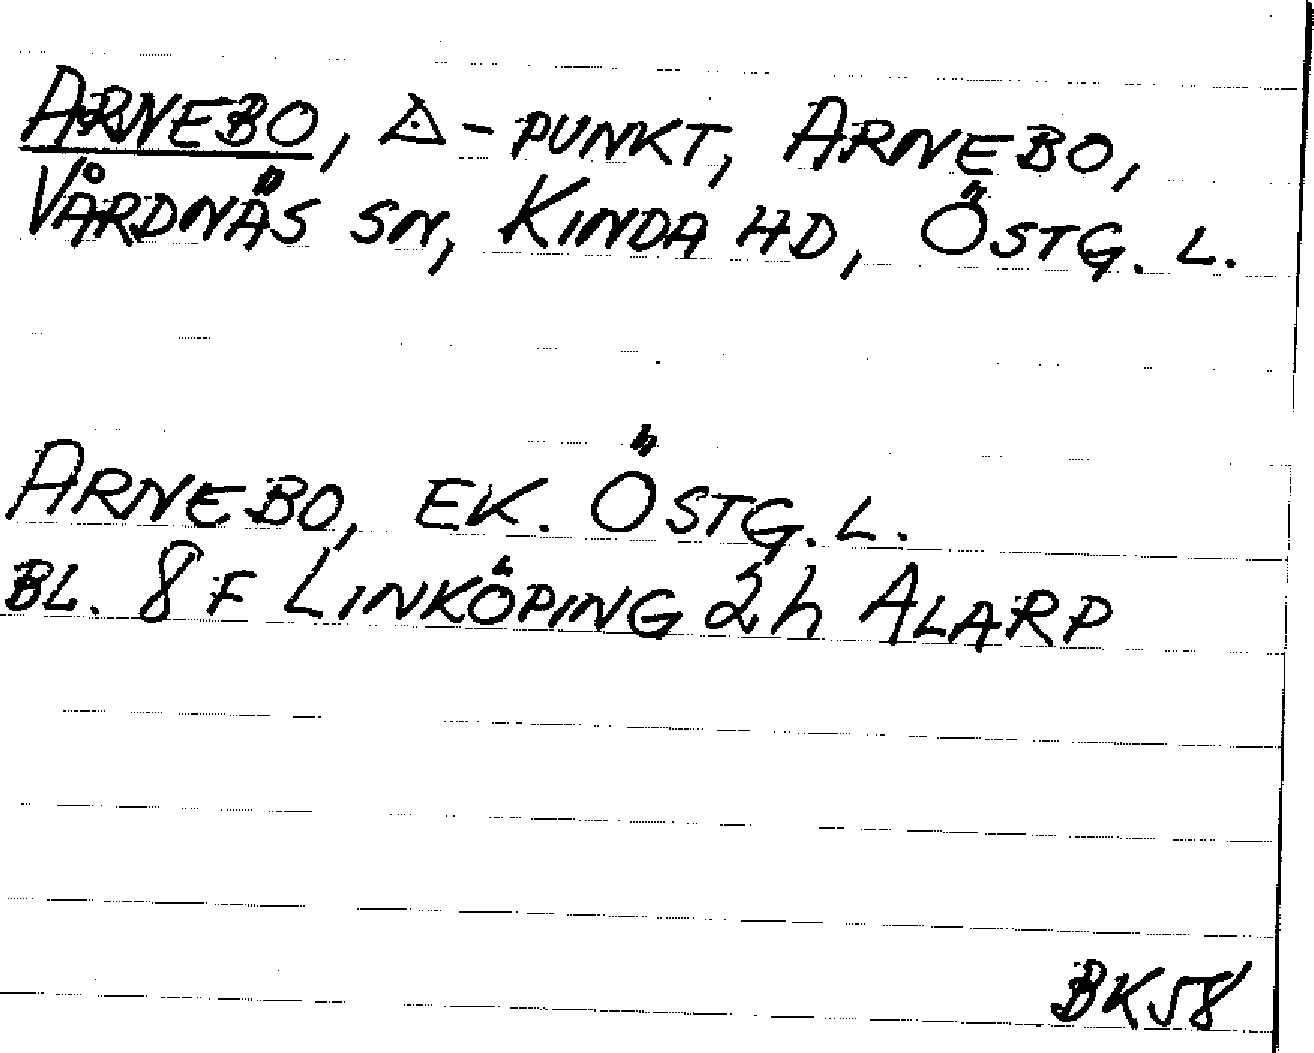 ARNEBO, △-PUNKT, ARNEBO,
VÅRDNÄS SN, KINDA HD, ÖSTG. L.
ARNEBO, EK. ÖSTG. L.
BL. 8 F LINKÖPING 2h ALARP
BK58